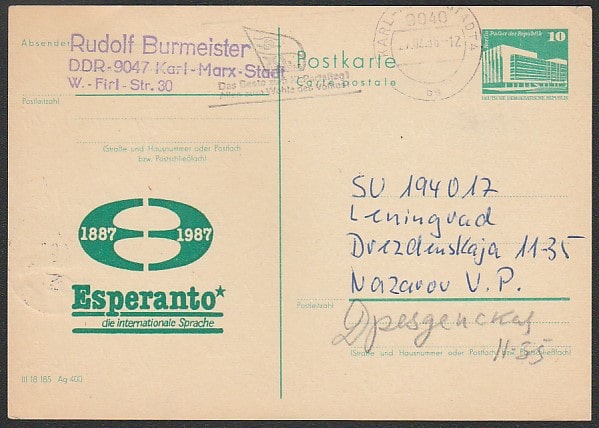 Absender
Rudolf Burmeister
DDR-9047 Karl-Marx-Stadt
W.-Firl-Str. 30
Postleitzahl
(Straße und Hausnummer oder Postfach
bzw. Postschließfach)
Das Beste zum XI. Parteitag!
Alles zum Wohle des Volkes
Postkarte
Carte postale
9040
-12
Berlin, Palast der Republik
10
DEUTSCHE DEMOKRATISCHE REPUBLIK
1887 1987
Esperanto*
die internationale Sprache
SU 194017
Leningrad
Drezdenskaja 11-35
Nazarov V.P.
Postleitzahl
Дрезденская
11-35
(Straße und Hausnummer oder Postfach, bzw. Postschließfach)
III 18 185 Ag 400